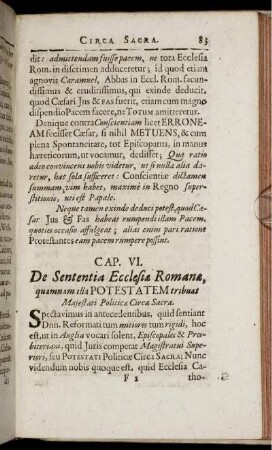 CIRCA SACRA. 83
dit: admittendam fuisse pacem, ne tota Ecclesia
Rom. in discrimen adduceretur; id quod etiam
agnovit Caramuel, Abbas in Eccl. Rom. facun-
dissimus & eruditissimus, qui exinde deducit,
quod Cæsari Jus & FAS fuerit, etiam cum magno
dispendio Pacem facere, ne TOTUM amitteretur.
Denique contra Conscientiam licet ERRONE-
AM fecisset Cæsar, si nihil METUENS, & cum
plena Spontaneitate, tot Episcopatus, in manus
hæreticorum, ut vocamur, dedisset; Quæ ratio
adeo convincens nobis videtur, ut si nulla alia da-
retur, hæc sola sufficeret: Conscientiæ dictamen
summam vim habet, maxime in Regno super-
stitionis, uti est Papale.
Neque tamen exinde deduci potest, quod Cæ-
sar Jus & FAS habeat rumpendi ictam Pacem,
quoties occasio affulgeat; alias enim pari ratione
Protestantes eam pacem rumpere possint.
CAP. VI.
De Sententia Ecclesiæ Romanæ,
quamnam illa POTESTATEM tribuat
Majestati Politicæ Circa Sacra.
Spectavimus in antecedentibus, quid sentiant
Dnn. Reformati tum mitiores tum rigidi, hoc
est, ut in Anglia vocari solent, Episcopales & Pres-
biteriani, quid Juris competat Magistratui Supe-
riori, seu POTESTATI Politicæ CIRCA SACRA; Nunc
videndum nobis quoque est, quid Ecclesia Ca-
F 2 tho-